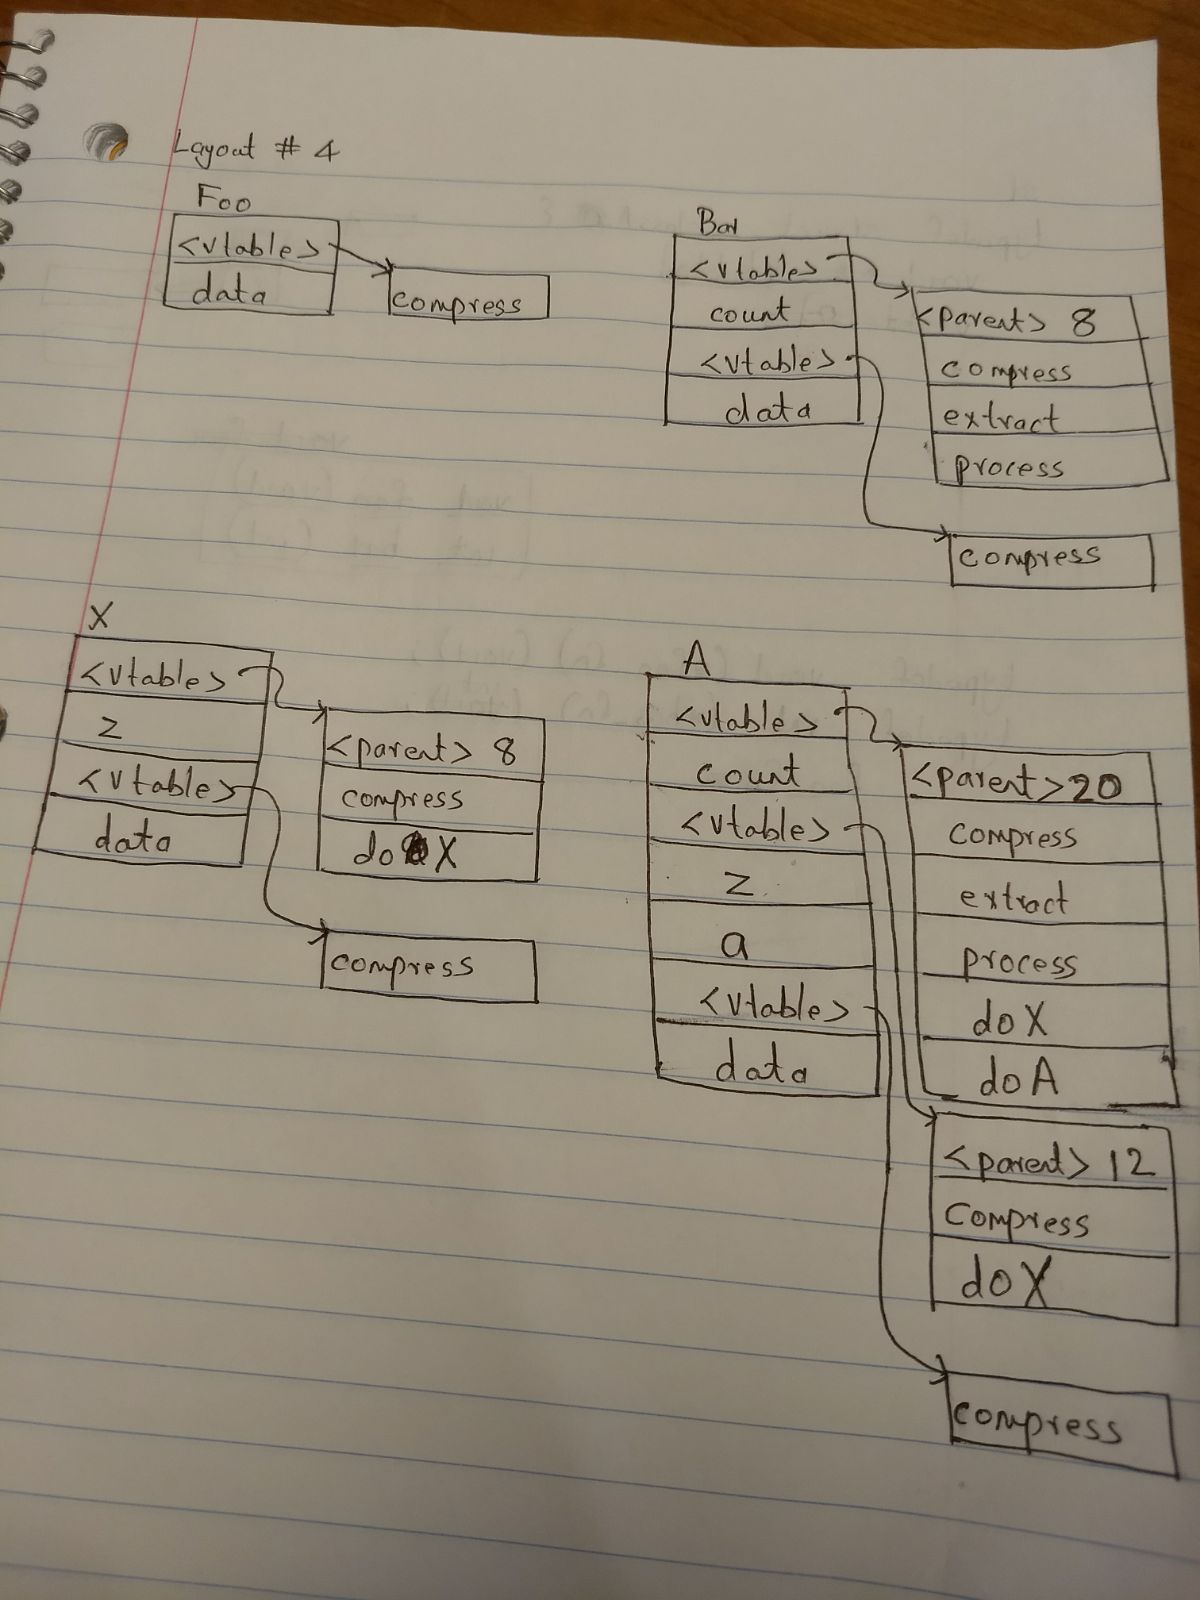 Layout # 4
Foo
<vtable>
data
compress
Bar
<vtable>
count
<vtable>
data
<parent> 8
compress
extract
process
compress
X
<vtable>
z
<vtable>
data
<parent> 8
compress
do X
compress
A
<vtable>
count
<vtable>
z
a
<vtable>
data
<parent> 20
compress
extract
process
do X
do A
<parent> 12
compress
do X
compress